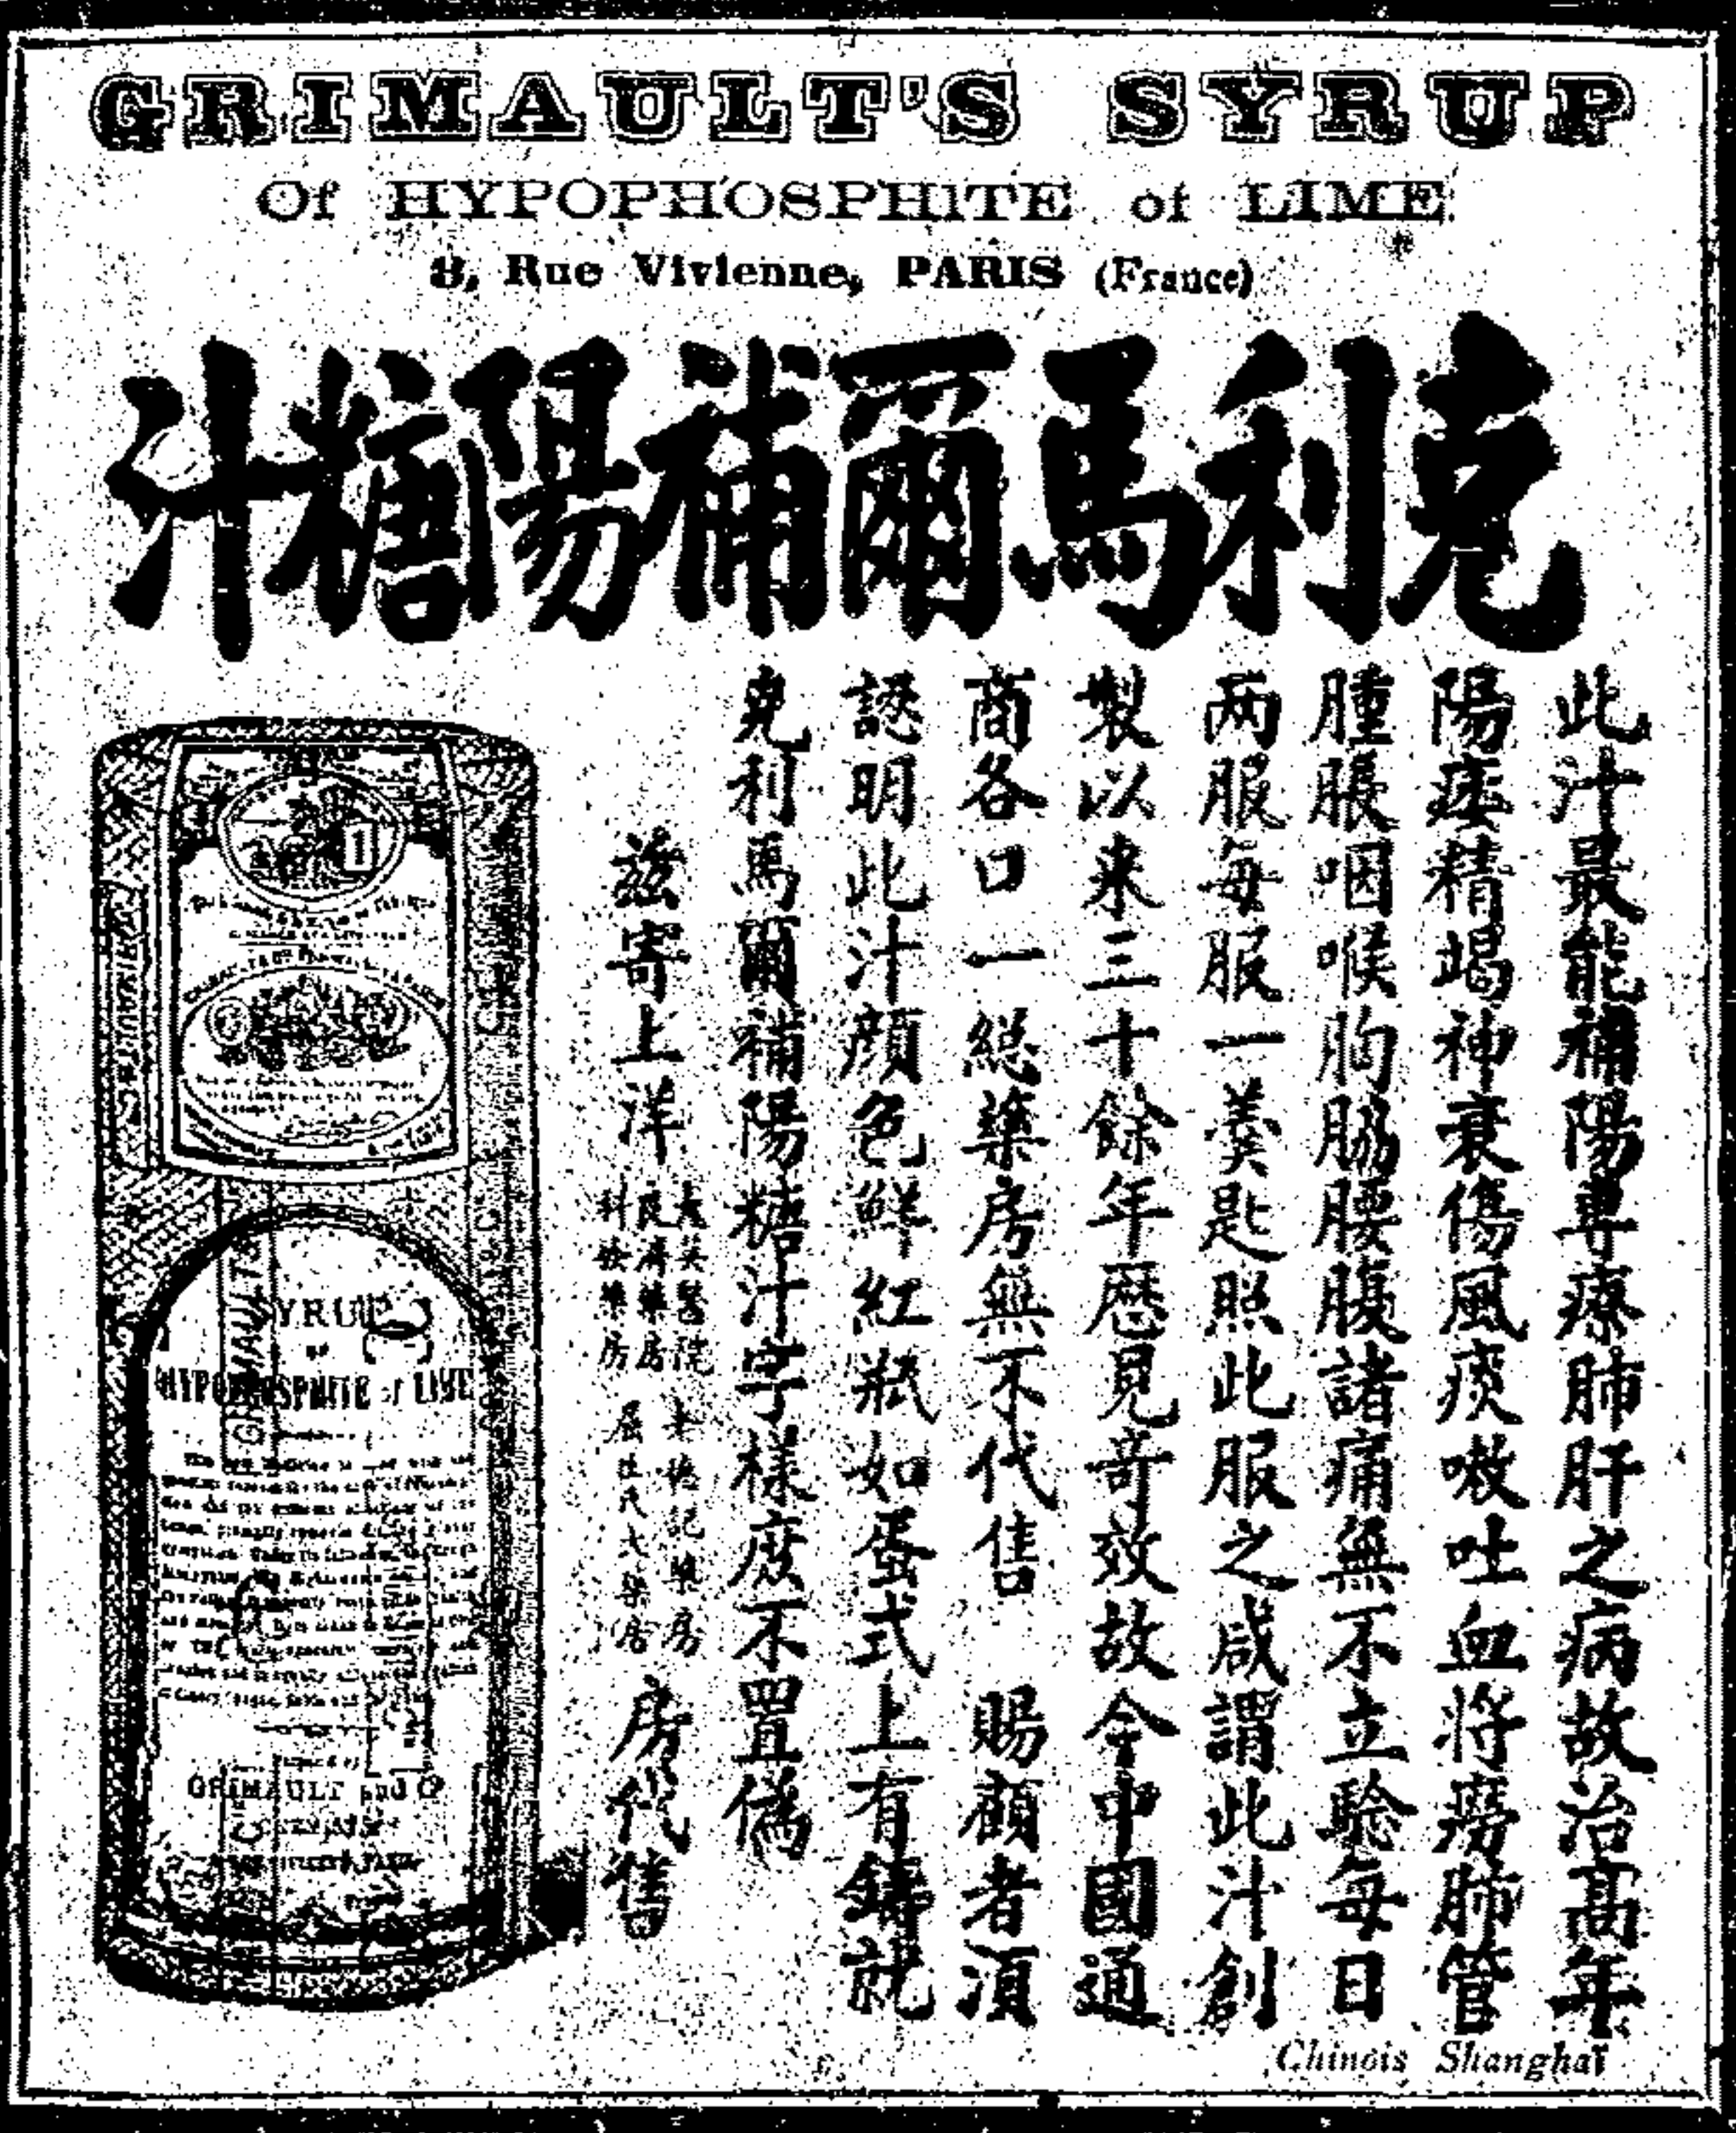 GRIMAULT'S SYRUP
Of HYPOPHOSPHITE of LIME
8, Rue Vivienne, PARIS (France)
克利馬爾補陽糖汁
此汁最能補陽專療肺肝之病故治高年
陽痿精竭神衰傷風痰嗽吐血將癆肺管
腫脹咽喉胸脇腰腹諸痛無不立騐每日
兩服每服一羹匙照此服之咸謂此汁創
製以來三十餘年歷見奇效故令中國通
商各口一總藥房無不代售 賜顧者須
認明此汁顏色鮮紅瓶如蛋式上有鑄就
克利馬爾補陽糖汁字樣庶不置僞
茲寄上洋
大英醫院
良濟藥房
科發藥房
德記藥房
屈臣氏大藥房
房代售
SYRUP
OF
HYPOPHOSPHITE of LIME
GRIMAULT and Co
GRIMAULT
Chinois Shanghaï